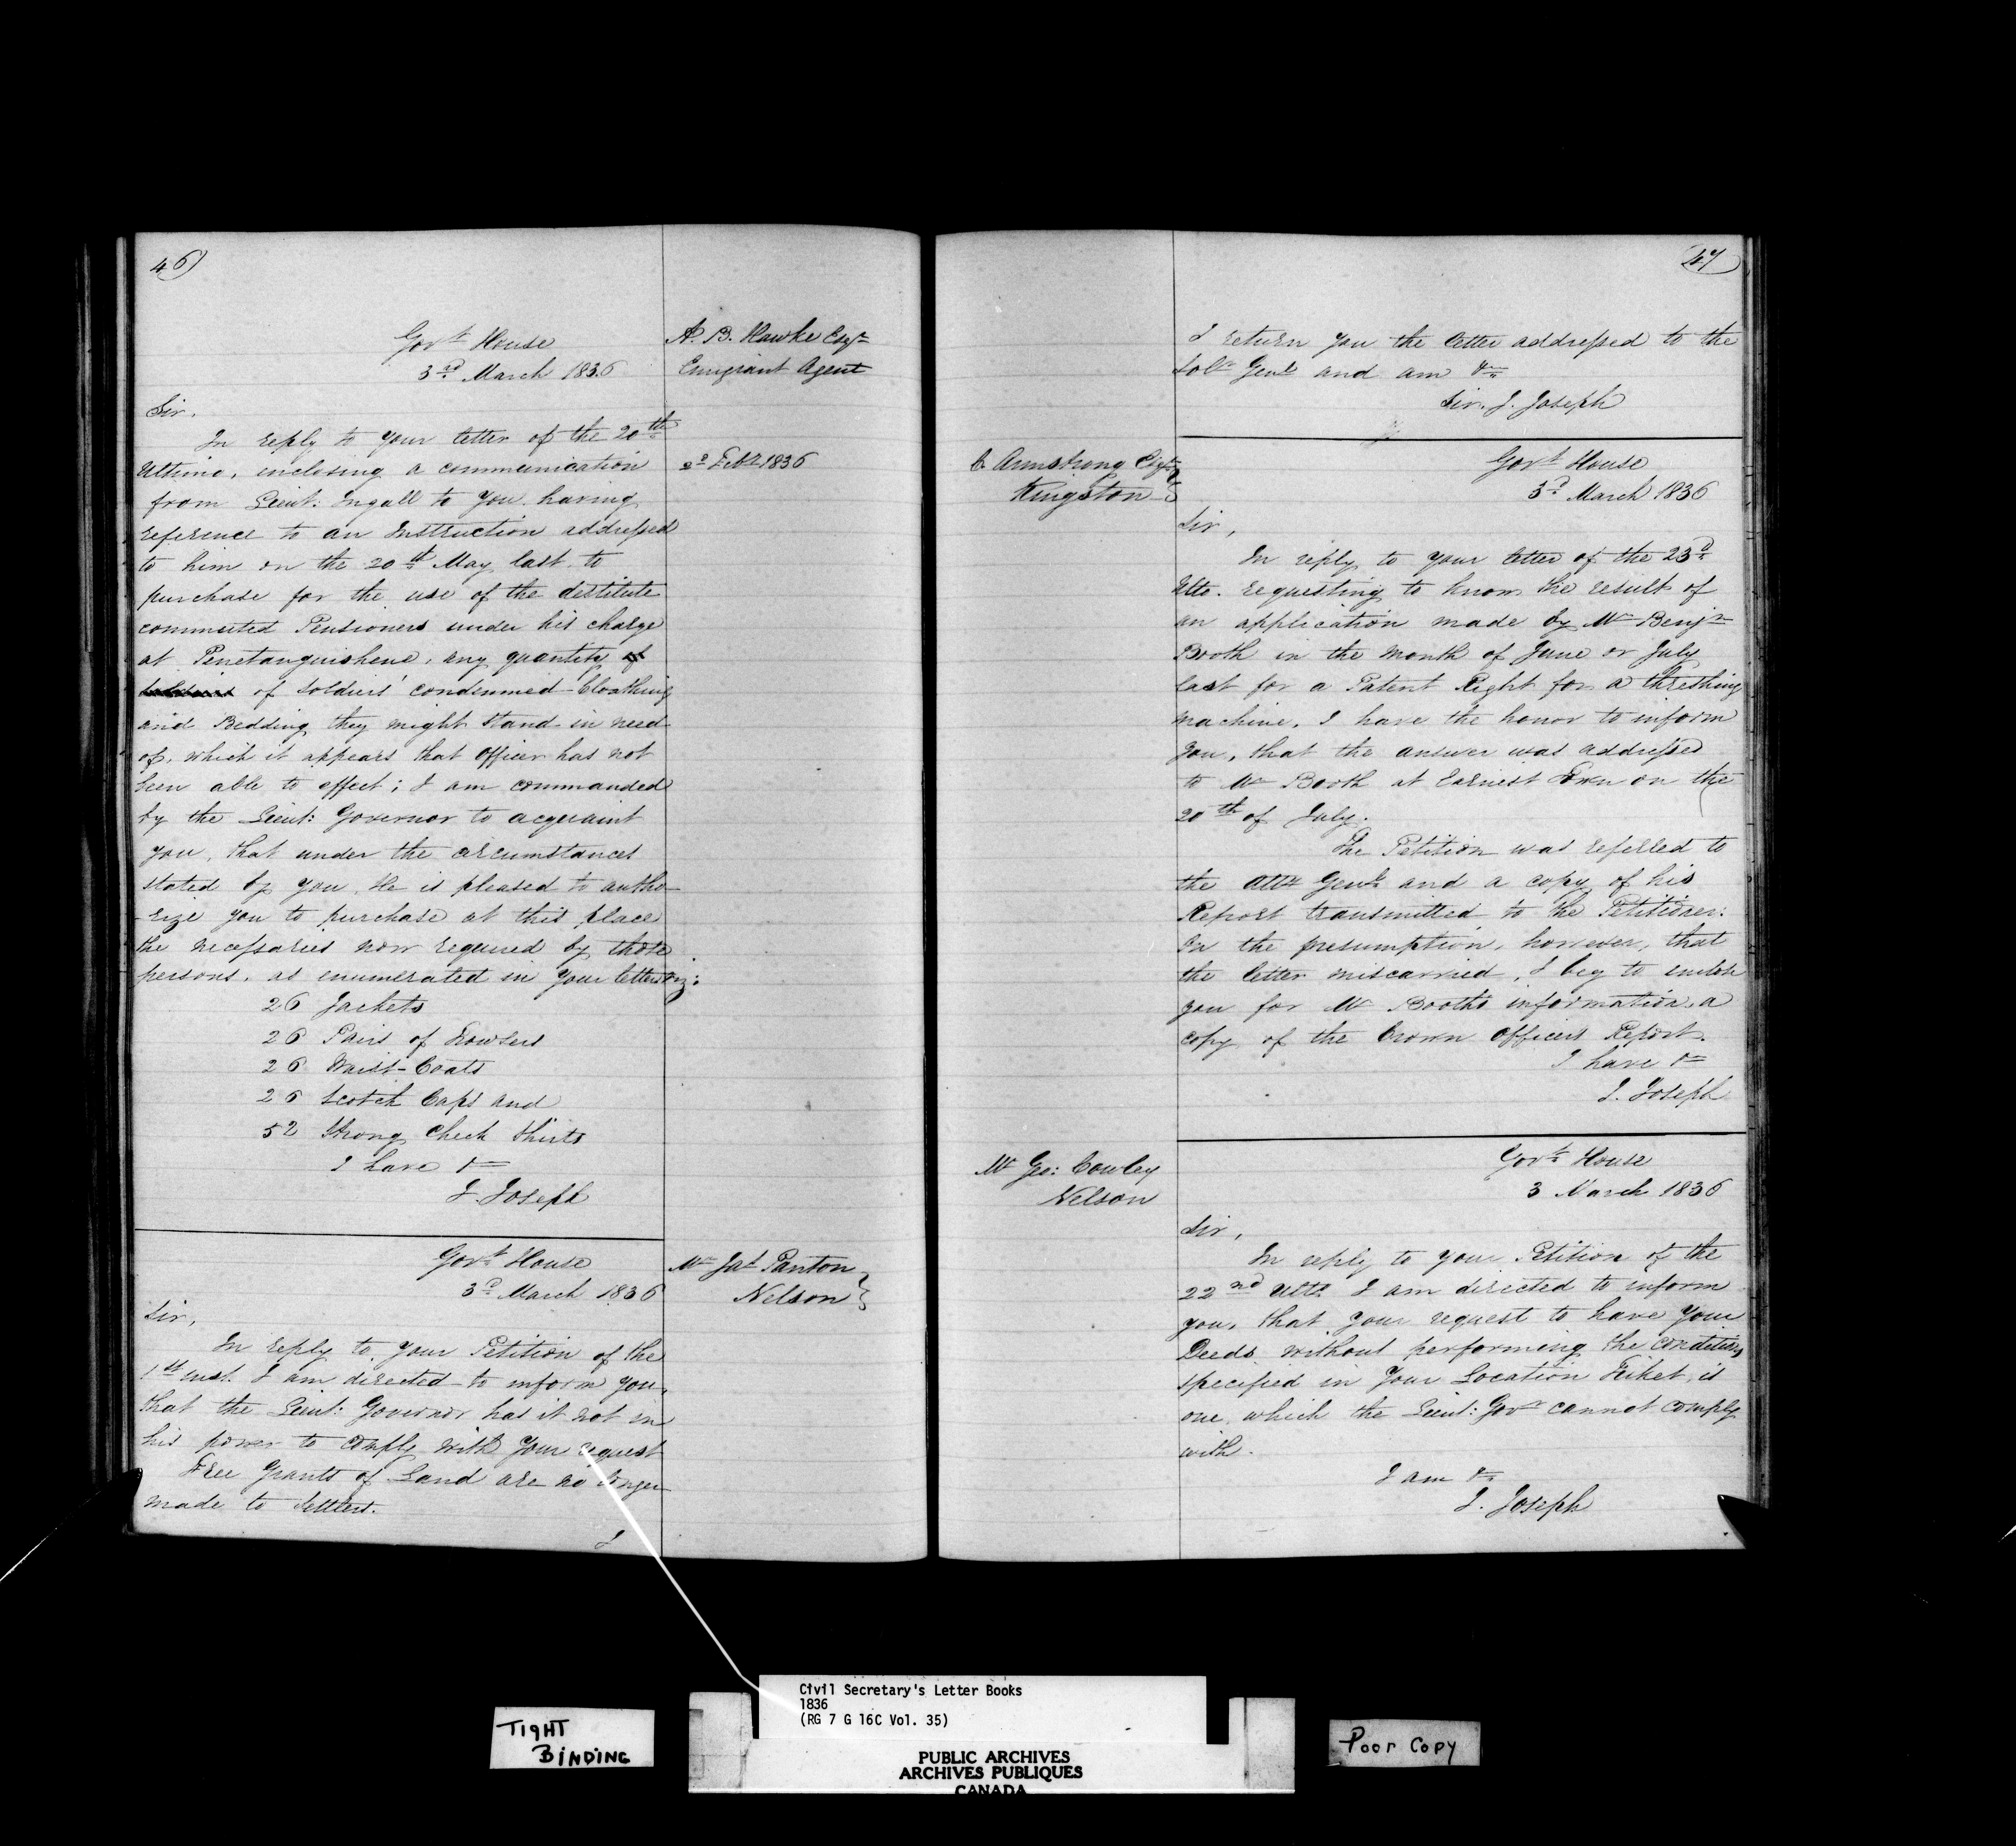 46)
Govt House
3rd March 1836
A. B. Hawke Esqr
Emigrant Agent
Sir,
In reply to your letter of the 20th
Ultimo, inclosing a communication
Feby 1836
from Lieut: Ingall to you, having
reference to an Instruction addressed
to him on the 20th May last to
purchase for the use of the destitute
commuted Pensioners under his charge
at Penetanguishene, any quantity of
of Soldiers' condemned Cloathing
and Bedding they might stand in need
of, which it appears that Officer has not
been able to effect; I am commanded
by the Lieut: Governor to acquaint
you, that under the circumstances
stated by you, He is pleased to autho-
-rize you to purchase at this place
the necessaries now required by those
persons, as enumerated in your letter viz:
26 Jackets
26 Pairs of Trowsers
26 Waist-Coats
26 Scotch Caps and
52 Strong Check Shirts
I have &c
J. Joseph
Govt House
3d March 1836
Mr Jas Panton
Nelson
Sir,
In reply to your Petition of the
1st inst. I am directed to inform you,
that the Lieut: Governor has it not in
his power to comply with your request
Free Grants of Land are no longer
made to Settlers.
I
47
I return you the letter addressed to the
Solr Genl and am &c
Sir, J. Joseph
C. Armstrong Esqr
Kingston
Govt House
3d March 1836
Sir,
In reply to your letter of the 23d
Ulto. requesting to know the result of
an application made by Mr Benjn
Booth in the month of June or July
last for a Patent Right for a threshing
machine, I have the honor to inform
you, that the answer was addressed
to Mr Booth at Earnest Town on the
20th of July.
The Petition was referred to
the Atty Genl and a copy of his
Report transmitted to the Petitioner:
On the presumption, however, that
the letter miscarried, I beg to enclose
you for Mr Booths information, a
copy of the Crown Officers Report.
I have &c
J. Joseph
Mr Geo: Cowley
Nelson
Govt House
3 March 1836
Sir,
In reply to your Petition of the
22nd Ulto I am directed to inform
you, that your request to have your
Deeds without performing the conditions
specified in your Location Ticket, is
one, which the Lieut: Govr cannot comply
with.
I am &c
J. Joseph
TIGHT
BINDING
Civil Secretary's Letter Books
1836
(RG 7 G 16C Vol. 35)
PUBLIC ARCHIVES
ARCHIVES PUBLIQUES
CANADA
Poor Copy